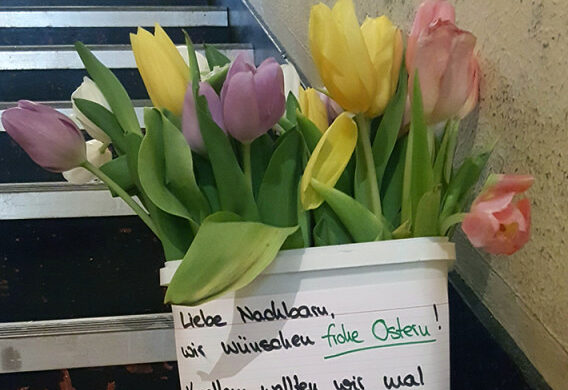 Liebe Nachbarn,
wir wünschen frohe Ostern!
wollten wir mal